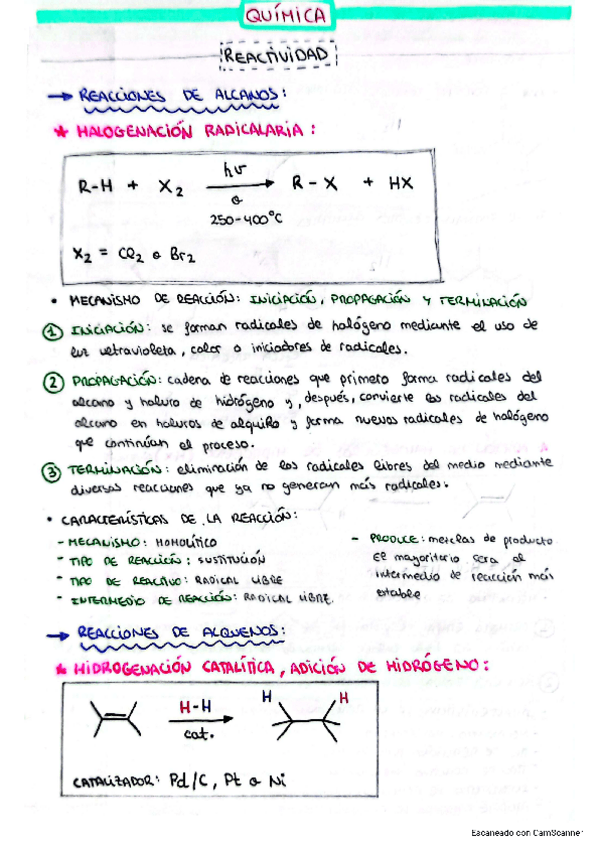 QUÍMICA
REACTIVIDAD
→ REACCIONES DE ALCANOS:
* HALOGENACIÓN RADICALARIA:
R-H + X2 hν o 250-400°C → R-X + HX
X2 = Cl2 o Br2
• MECANISMO DE REACCIÓN: INICIACIÓN, PROPAGACIÓN Y TERMINACIÓN
① INICIACIÓN: se forman radicales de halógeno mediante el uso de
luz ultravioleta, calor o iniciadores de radicales.
② PROPAGACIÓN: cadena de reacciones que primero forma radicales del
alcano y haluro de hidrógeno y, después, convierte los radicales del
alcano en haluros de alquilo y forma nuevos radicales de halógeno
que continúan el proceso.
③ TERMINACIÓN: eliminación de los radicales libres del medio mediante
diversas reacciones que ya no generan más radicales.
• CARACTERÍSTICAS DE LA REACCIÓN:
- MECANISMO: HOMOLÍTICO
- TIPO DE REACCIÓN: SUSTITUCIÓN
- TIPO DE REACTIVO: RADICAL LIBRE
- INTERMEDIO DE REACCIÓN: RADICAL LIBRE.
- PRODUCE: mezclas de producto
El mayoritario sera el
intermedio de reacción más
estable
→ REACCIONES DE ALQUENOS:
* HIDROGENACIÓN CATALÍTICA, ADICIÓN DE HIDRÓGENO:
H-H
cat.
H H
CATALIZADOR: Pd/C, Pt o Ni
Escaneado con CamScanner